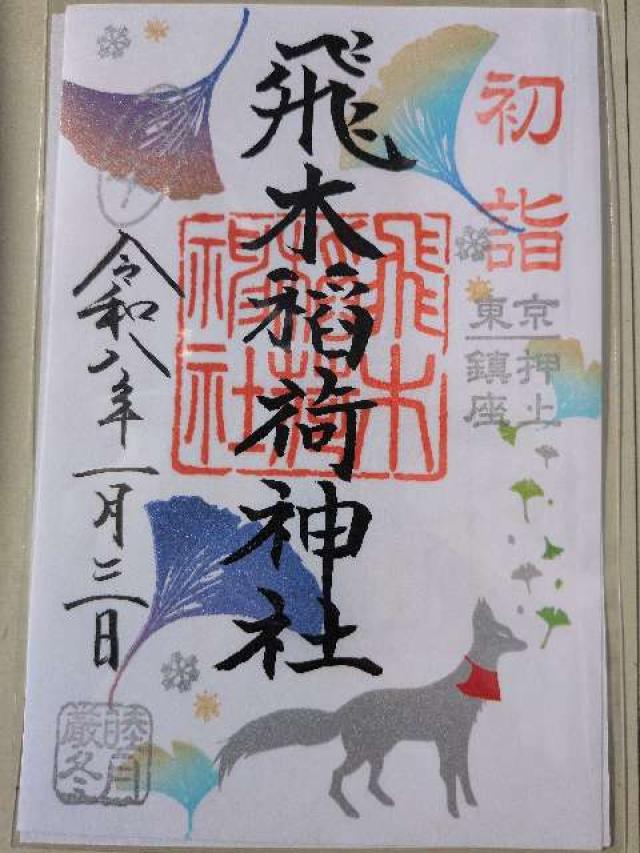 初詣
東京押上
鎮座
飛木稲荷神社
飛木
稲荷
神社
令和八年一月三日
睦月
厳冬